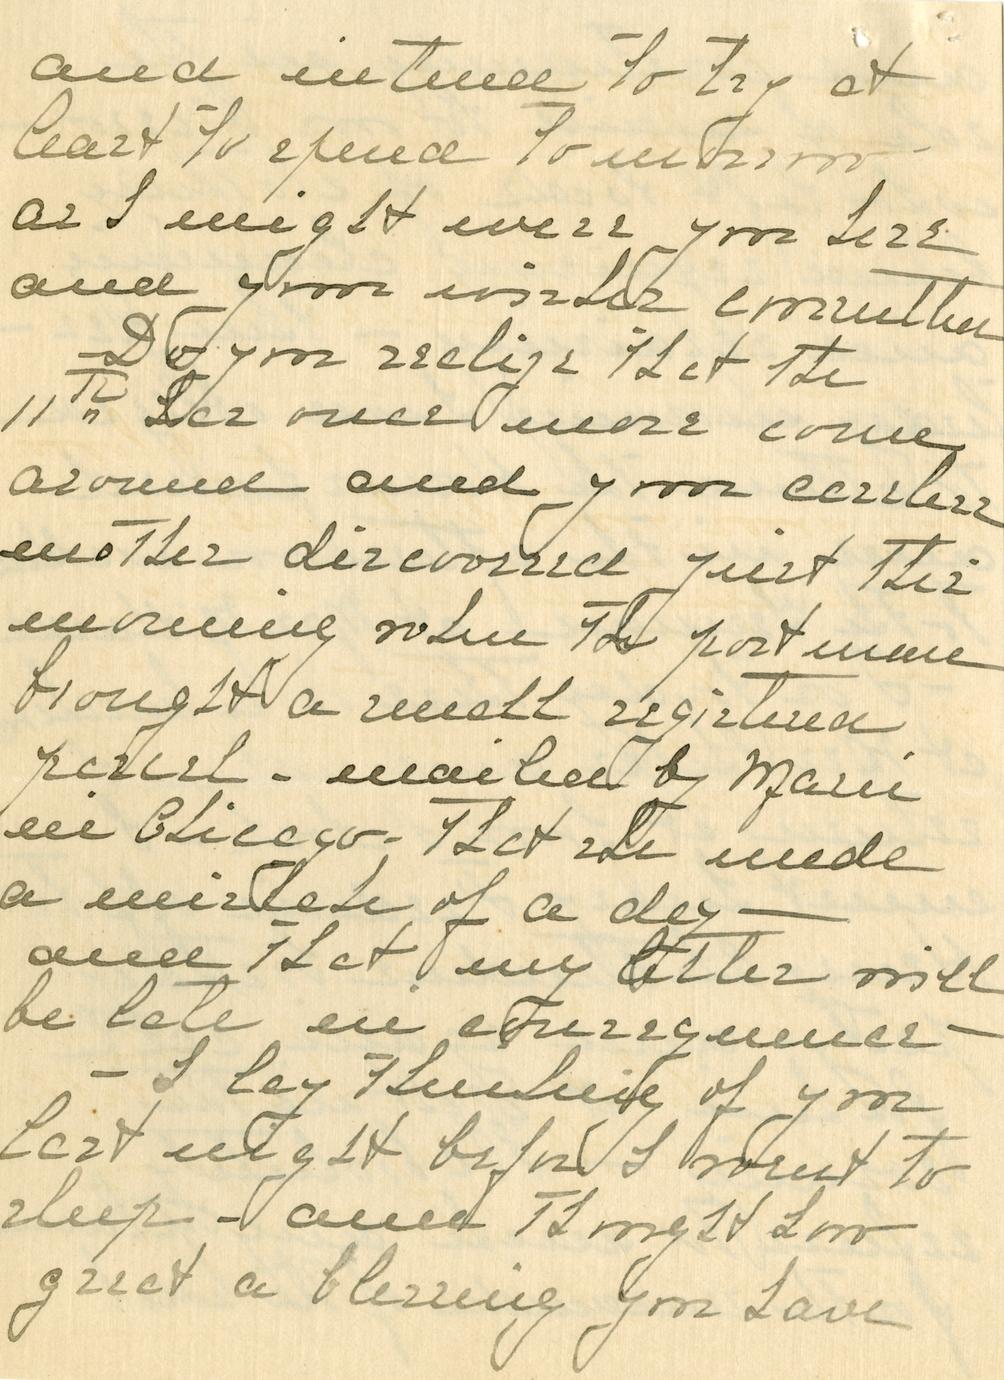 and intend to try at
least to spend tomorrow
as I might were you here
and your winter another
- Do you realize that the
11th has once more come
around and your careless
mother discovered just this
morning when the postman
brought a small registered
parcel - mailed by Marie
in Chicago - that she made
a mistake of a day —
and that my letter will
be late in consequence —
- I lay thinking of you
last night before I went to
sleep - and thought how
great a blessing you have